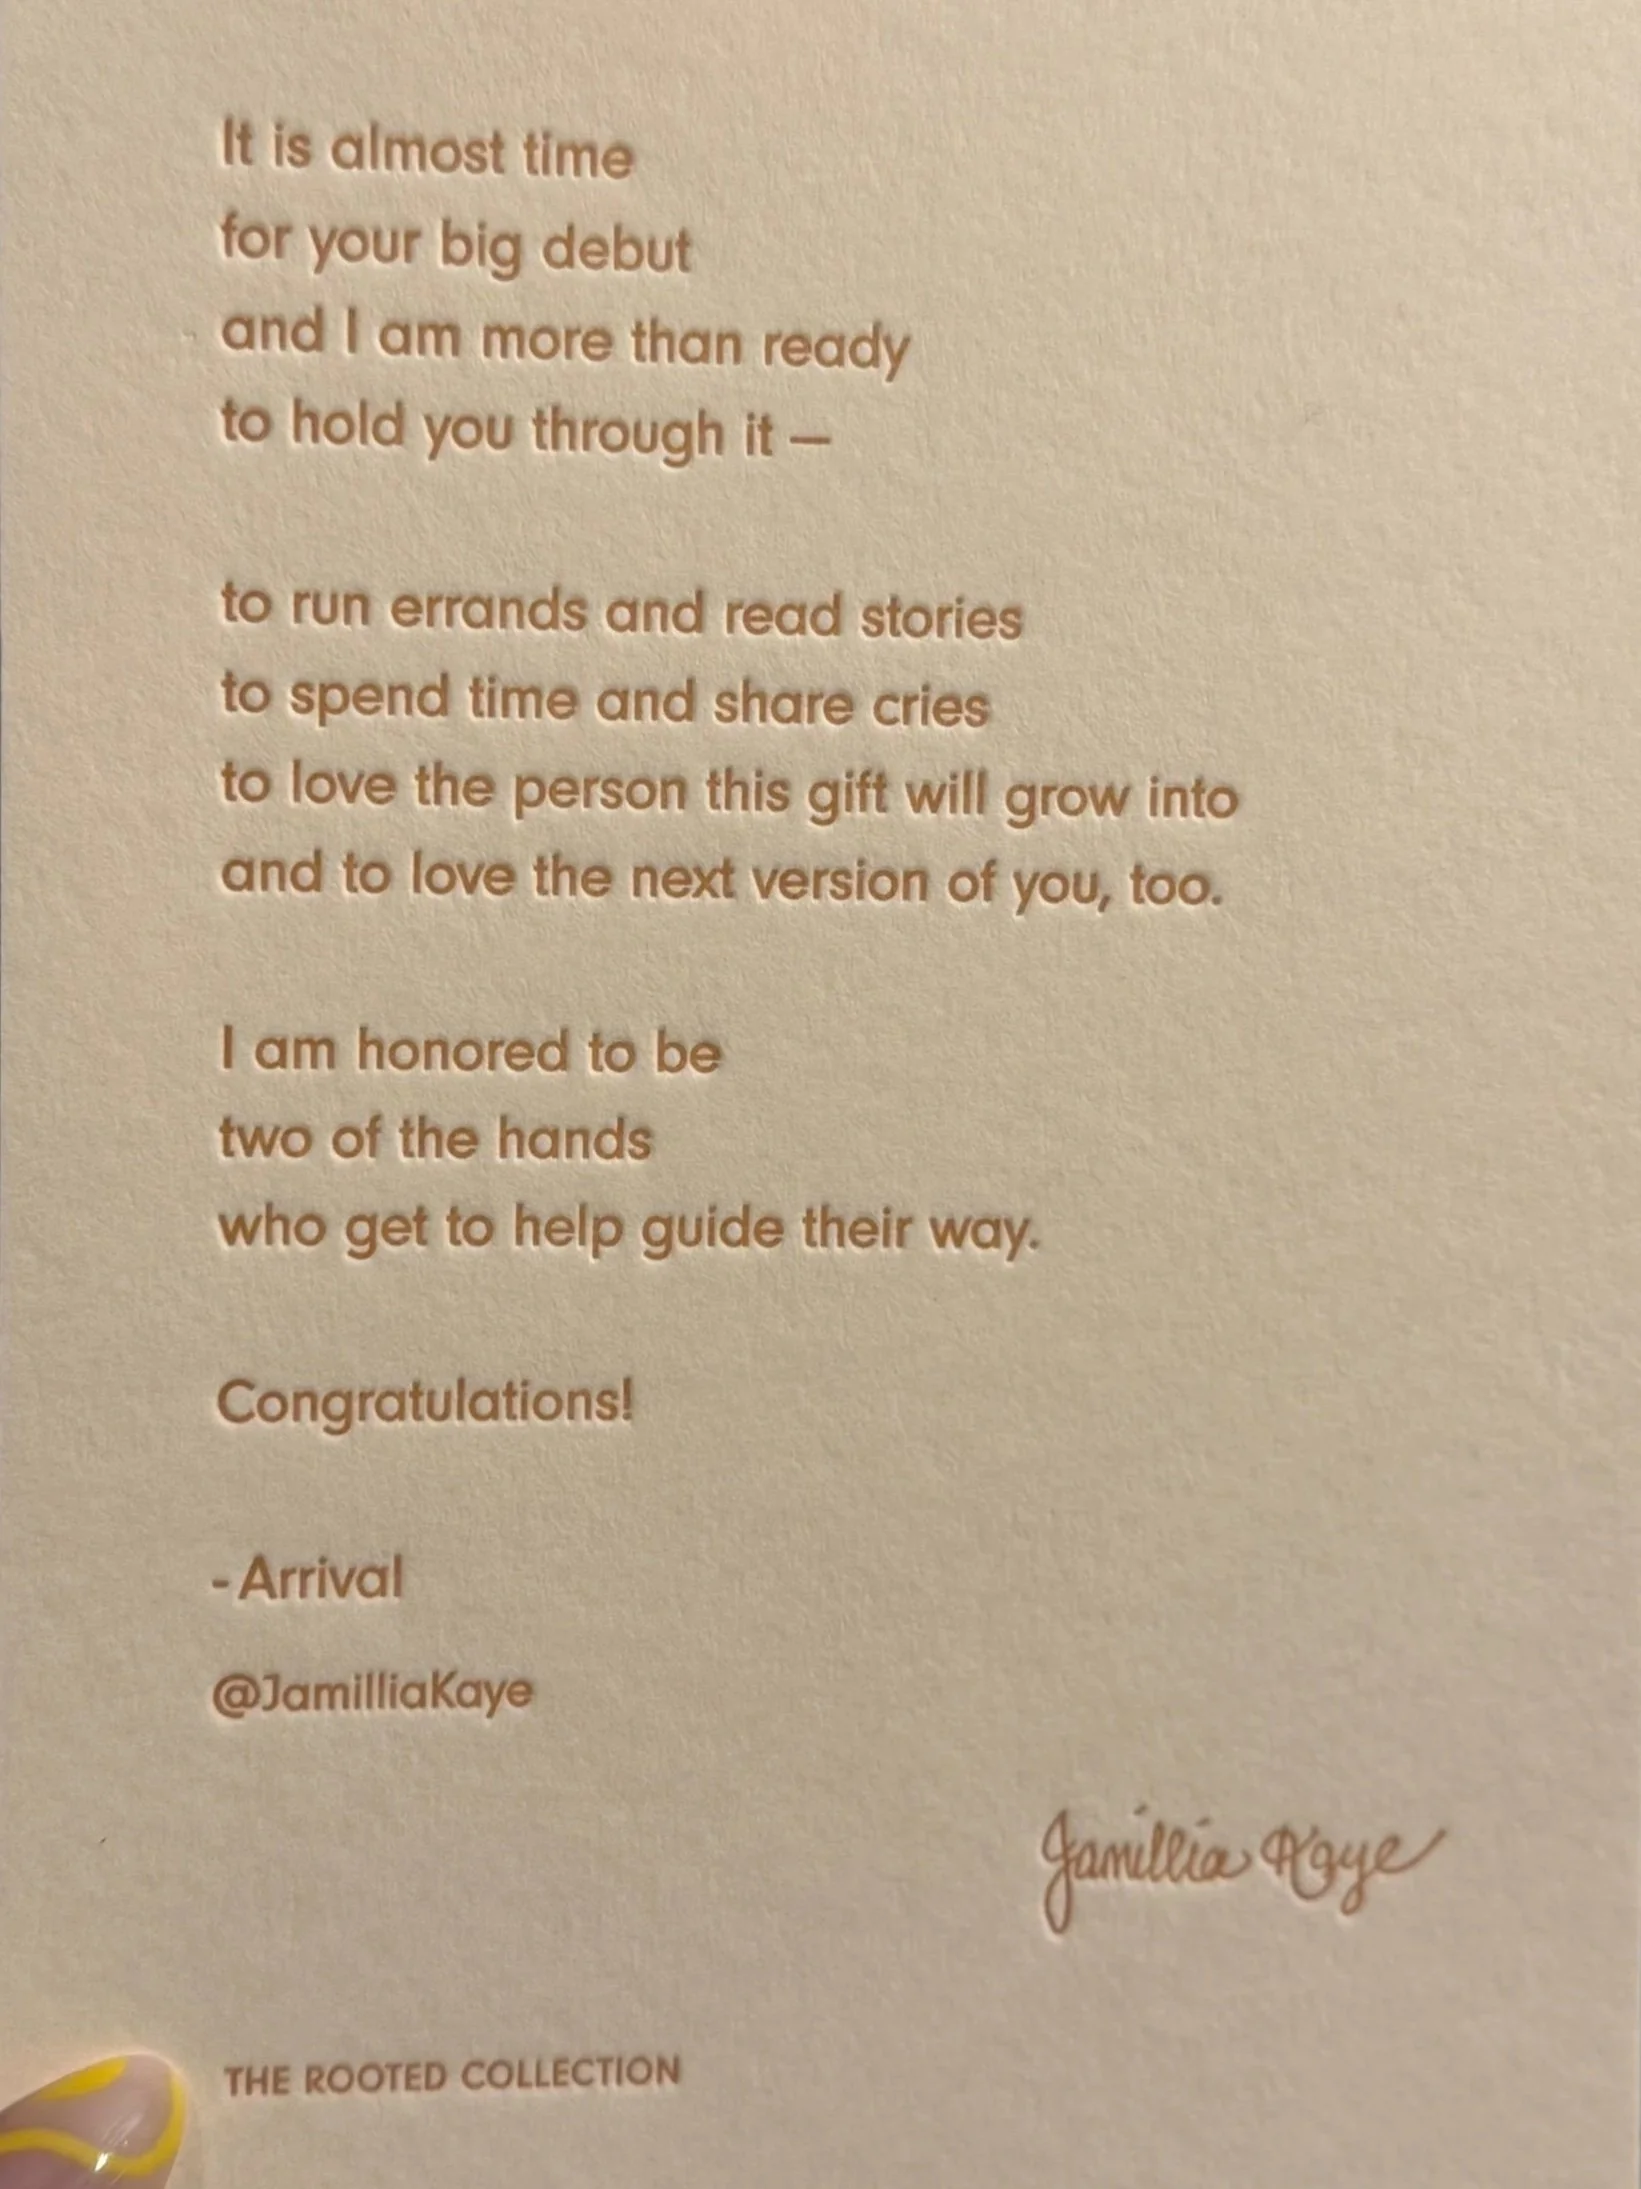 It is almost time
for your big debut
and I am more than ready
to hold you through it —
to run errands and read stories
to spend time and share cries
to love the person this gift will grow into
and to love the next version of you, too.
I am honored to be
two of the hands
who get to help guide their way.
Congratulations!
- Arrival
@JamilliaKaye
Jamillia Kaye
THE ROOTED COLLECTION